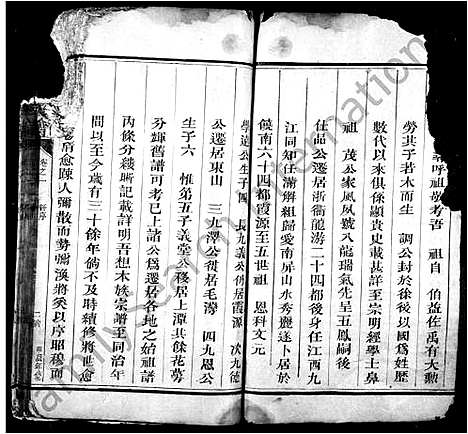 嗚呼祖敬考吾 祖自 伯益佐禹有大勳
勞其子若木而生 調公封於徐後以國爲姓歷
數代以來俱係顯貴史載甚詳至宗明經學士鼻
祖 茂公家風夙號八龍瑞氣先呈五鳳嗣後
仕品公遷居浙衢龍游二十四都後身任江西九
江同知任滿解組歸愛南屏山水秀麗遂卜居於
饒南六十四都霞源至五世祖 恩科文元
學遠公生子四 長九義公傳居霞源 次九德
公遷居東山 三九澤公徙居毛灣 四九恩公
生子六 惟第五子義堂公移居上潭其餘花萼
分輝舊譜可考已上諸公爲遷居各地之始祖譜
內條分縷晰記載詳明吾想本族宗譜至同治年
間以至今歲有三十餘年倘不及時續修將世愈
而愈踈人彌散而勢彌渙將奚以序昭穆而
卷之一 新序
二
FamilySearch International